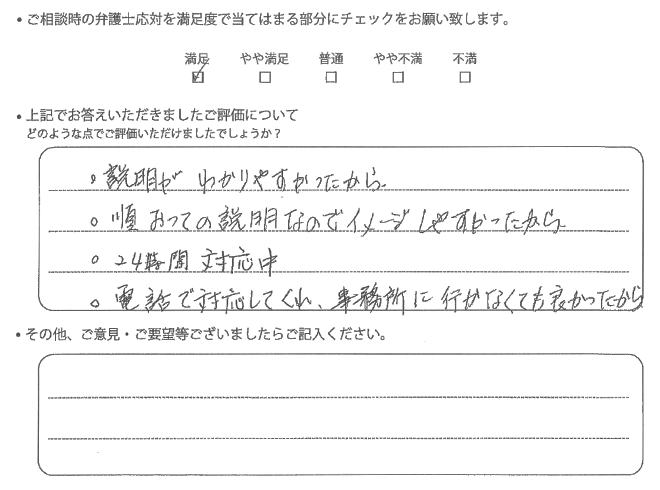 ・ご相談時の弁護士応対を満足度で当てはまる部分にチェックをお願い致します。
満足 やや満足 普通 やや不満 不満
☑ □ □ □ □
・上記でお答えいただきましたご評価について
どのような点でご評価いただけましたでしょうか？
○説明が わかりやすかったから
○順おっての説明なのでイメージしやすかったから
○24時間対応中
○電話で対応してくれ、事務所に行かなくても良かったから
・その他、ご意見・ご要望等ございましたらご記入ください。